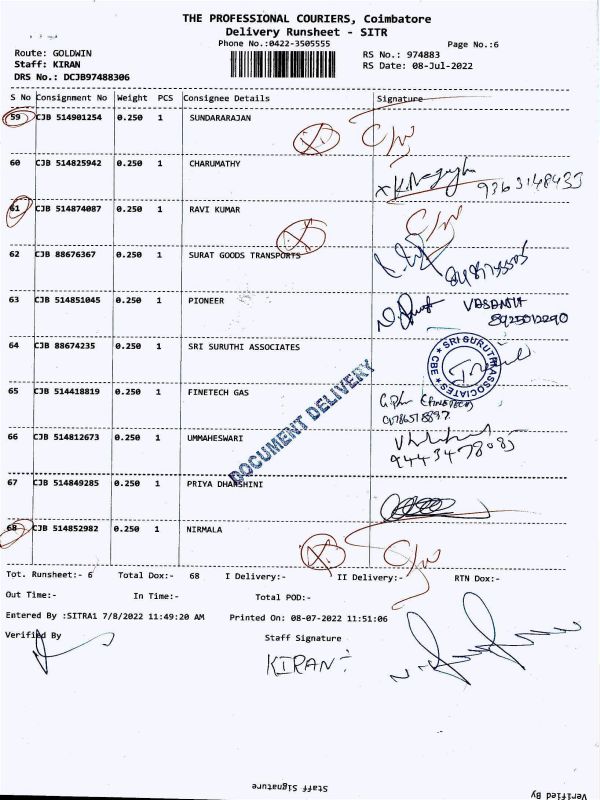 THE PROFESSIONAL COURIERS, Coimbatore
Delivery Runsheet - SITR
Phone No.:0422-3505555
Page No.:6
Route: GOLDWIN
Staff: KIRAN
DRS No.: DCJB97488306
RS No.: 974883
RS Date: 08-Jul-2022
S No Consignment No Weight PCS Consignee Details Signature
59 CJB 514901254 0.250 1 SUNDARARAJAN
60 CJB 514825942 0.250 1 CHARUMATHY
9363148433
61 CJB 514874087 0.250 1 RAVI KUMAR
62 CJB 88676367 0.250 1 SURAT GOODS TRANSPORTS
63 CJB 514851045 0.250 1 PIONEER
VASANTH
8925012290
64 CJB 88674235 0.250 1 SRI SURUTHI ASSOCIATES
SRI SURUTHI ASSOCIATES ★ CBE ★
65 CJB 514418819 0.250 1 FINETECH GAS
DOCUMENT DELIVERY
66 CJB 514812673 0.250 1 UMMAHESWARI
9443478085
67 CJB 514849285 0.250 1 PRIYA DHARSHINI
68 CJB 514852982 0.250 1 NIRMALA
Tot. Runsheet:- 6 Total Dox:- 68 I Delivery:- II Delivery:- RTN Dox:-
Out Time:- In Time:- Total POD:-
Entered By :SITRA1 7/8/2022 11:49:20 AM Printed On: 08-07-2022 11:51:06
Verified By Staff Signature
KIRAN
Staff Signature
Verified By